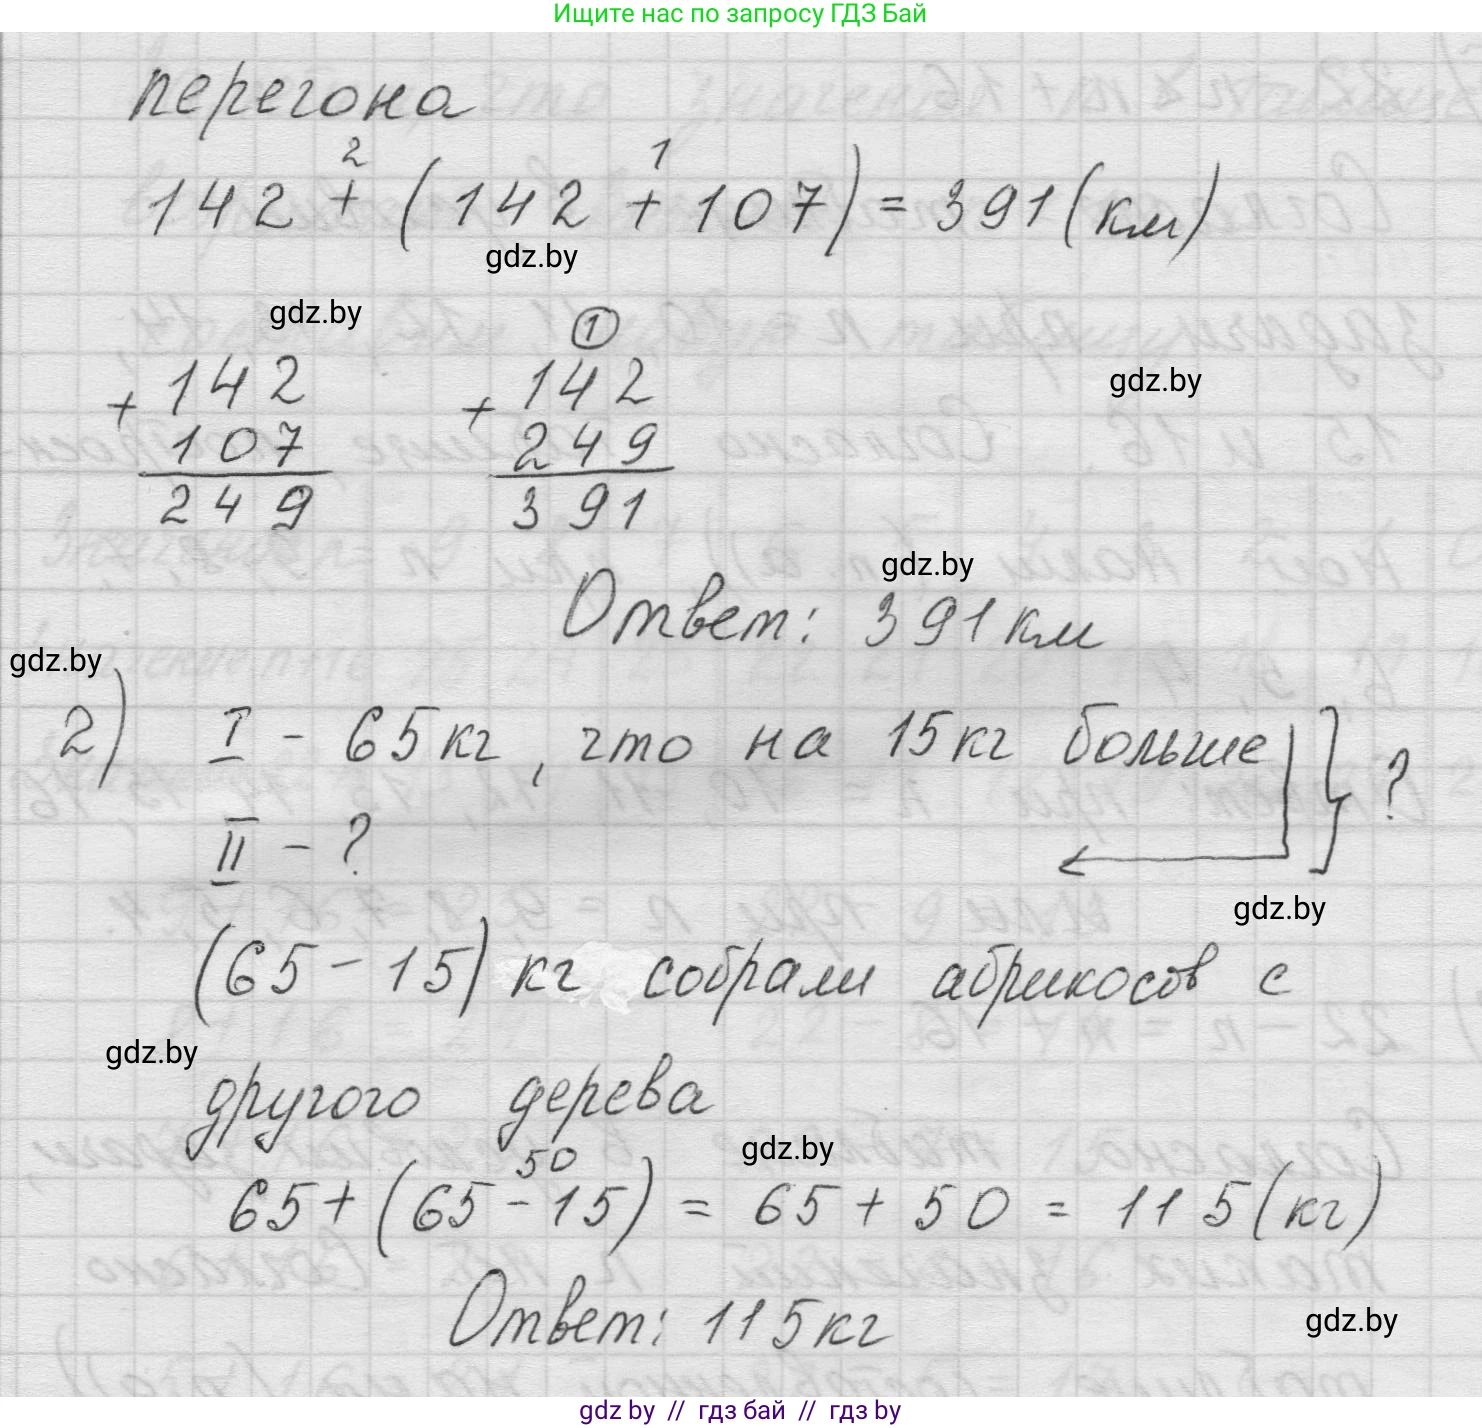 Ищите нас по запросу ГДЗ Бай
перегона
2 1
142 + (142 + 107) = 391 (км)
gdz.by
gdz.by
1
+ 142 + 142
gdz.by
107 249
249 391
gdz.by
Ответ: 391 км
gdz.by
2) I - 65 кг, что на 15 кг больше ?
II - ?
gdz.by
(65 - 15) кг собрали абрикосов с
gdz.by
другого дерева
gdz.by
50
65 + (65 - 15) = 65 + 50 = 115 (кг)
Ответ: 115 кг
gdz.by
gdz by // гдз бай // гдз by